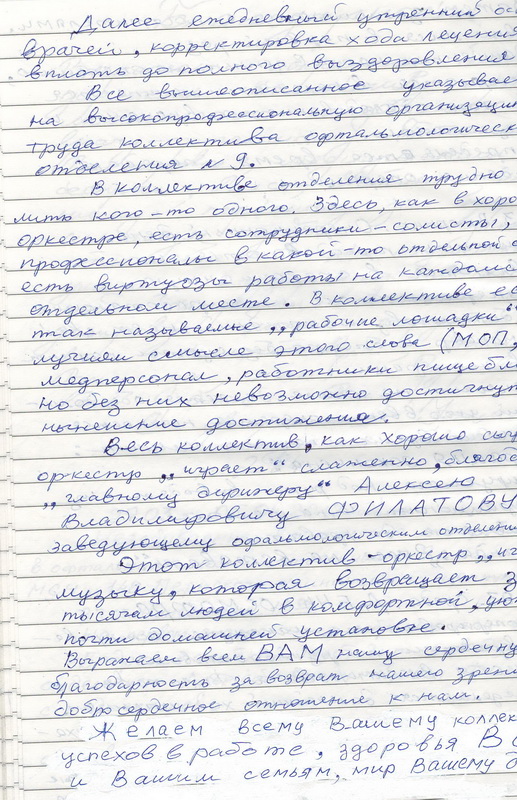 Далее ежедневный утренний ос
врачей, корректировка хода лечения
вплоть до полного выздоровления
Все вышеописанное указывае
на высокопрофессиональную организаци
труда коллектива офтальмологическ
отделения № 9.
В коллективе отделения трудно
лить кого-то одного. Здесь, как в хоро
оркестре, есть сотрудники-солисты,
профессионалы в какой-то отдельной о
есть виртуозы работы на каждом
отдельном месте. В коллективе ес
так называемые „рабочие лошадки"
лучшем смысле этого слова (МОП,
медперсонал, работники пищебло
но без них невозможно достигнут
нынешние достижения.
Весь коллектив, как хорошо сыг
оркестр „играет" слаженно, благод
„главному дирижеру" Алексею
Владимировичу ФИЛАТОВУ
заведующему офальмологическим отделени
Этот коллектив-оркестр „иг
музыку, которая возвращает з
тысячам людей в комфортной, ую
почти домашней установке.
Выражаем всем ВАМ нашу сердечну
благодарность за возврат нашего зрени
добросердечное отношение к нам.
Желаем всему Вашему коллек
успехов в работе, здоровья В
и Вашим семьям, мир Вашему д